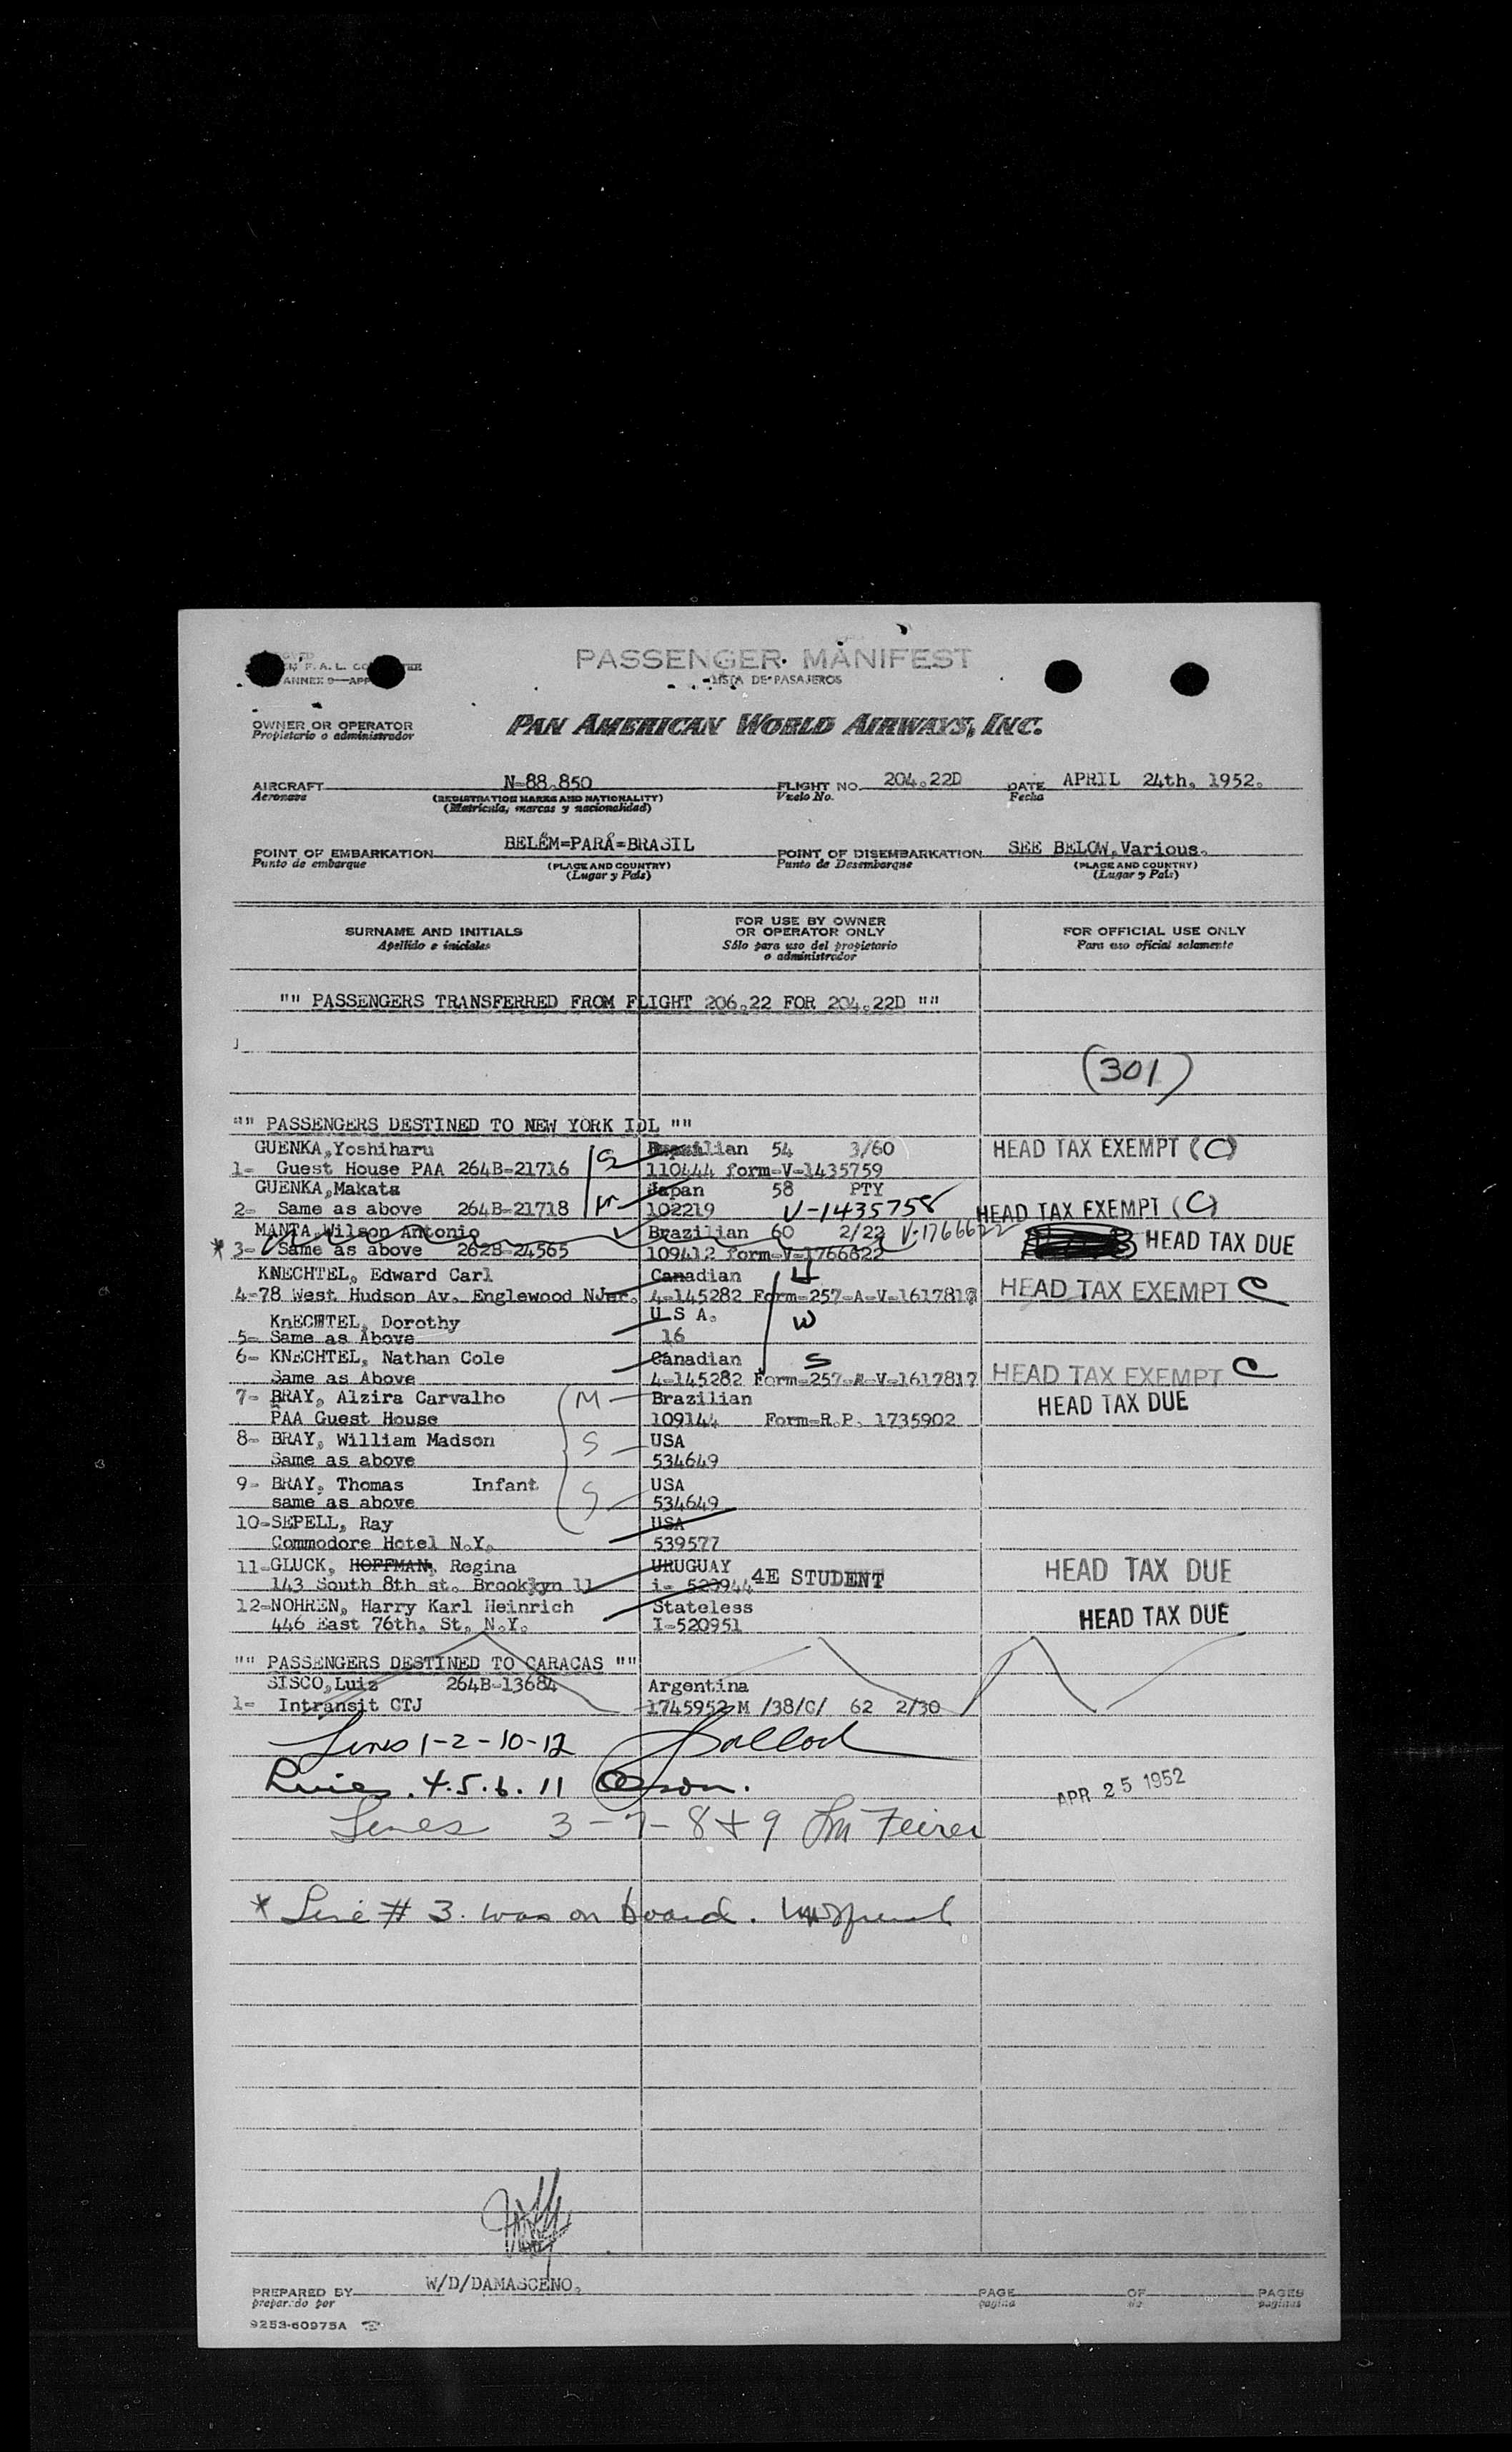 F. A. L.
ANNEX 9—APP
PASSENGER MANIFEST
LISTA DE PASAJEROS
OWNER OR OPERATOR
Propietario o administrador
PAN AMERICAN WORLD AIRWAYS, INC.
AIRCRAFT N-88.850 FLIGHT NO. 204.22D DATE APRIL 24th, 1952.
Aeronave (REGISTRATION MARKS AND NATIONALITY) Vuelo No. Fecha
(Matrícula, marcas y nacionalidad)
POINT OF EMBARKATION BELÉM=PARÁ=BRASIL POINT OF DISEMBARKATION SEE BELOW,Various.
Punto de embarque (PLACE AND COUNTRY) Punto de Desembarque (PLACE AND COUNTRY)
(Lugar y País) (Lugar y País)
SURNAME AND INITIALS FOR USE BY OWNER OR OPERATOR ONLY FOR OFFICIAL USE ONLY
Apellido e iniciales Sólo para uso del propietario o administrador Para uso oficial solamente
"" PASSENGERS TRANSFERRED FROM FLIGHT 206.22 FOR 204.22D ""
(301)
"" PASSENGERS DESTINED TO NEW YORK IDL ""
GUENKA,Yoshiharu Brazilian 54 3/60 HEAD TAX EXEMPT (C)
1- Guest House PAA 264B-21716 S 110444 form-V-1435759
GUENKA,Makata Japan 58 PTY
2- Same as above 264B-21718 M 102219 V-1435758 HEAD TAX EXEMPT (C)
MANTA,Wilson Antonio Brazilian 60 2/22 V-1766622
* 3- Same as above 262B-24565 109412 form-V-1766622 HEAD TAX DUE
KNECHTEL, Edward Carl Canadian H
4-78 West Hudson Av. Englewood NJer. 4-145282 Form-257-A-V-1617817 HEAD TAX EXEMPT C
KnECHTEL, Dorothy U.S A. W
5- Same as Above 16
6- KNECHTEL, Nathan Cole Canadian S
Same as Above 4-145282 Form-257-A-V-1617817 HEAD TAX EXEMPT C
7- BRAY, Alzira Carvalho M Brazilian HEAD TAX DUE
PAA Guest House 109144 Form-R.P. 1735902
8- BRAY, William Madson S USA
Same as above 534649
9- BRAY, Thomas Infant S USA
same as above 534649
10-SEPELL, Ray USA
Commodore Hotel N.Y. 539577
11-GLUCK, HOFFMAN, Regina URUGUAY 4E STUDENT HEAD TAX DUE
143 South 8th st. Brooklyn 11 i- 520944
12-NOHREN, Harry Karl Heinrich Stateless HEAD TAX DUE
446 East 76th. St. N.Y. I-520951
"" PASSENGERS DESTINED TO CARACAS ""
SISCO,Luiz 264B-13684 Argentina
1- Intransit CTJ 1745952 M /38/C/ 62 2/30
Lines 1-2-10-12
Lines. 4.5.6.11 Olson.
APR 25 1952
Lines 3-7-8+9
* Line # 3. was on board.
W/D/DAMASCENO.
PREPARED BY PAGE OF PAGES
preparado por pagina de paginas
9253-60975A